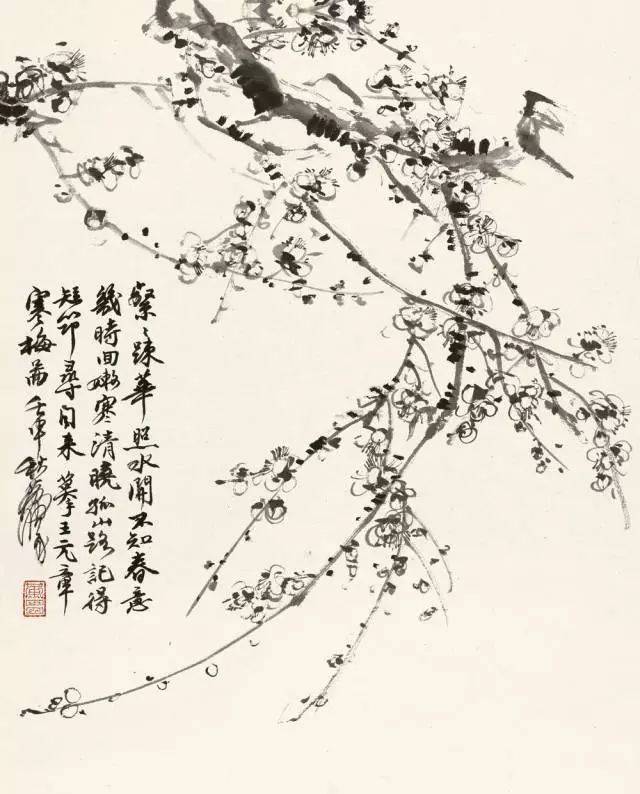 粲〻疎華照水開不知春意
幾時回嫩寒清曉孤山路記得
短筇尋句来 摹王元章
寒梅啚 壬申秋